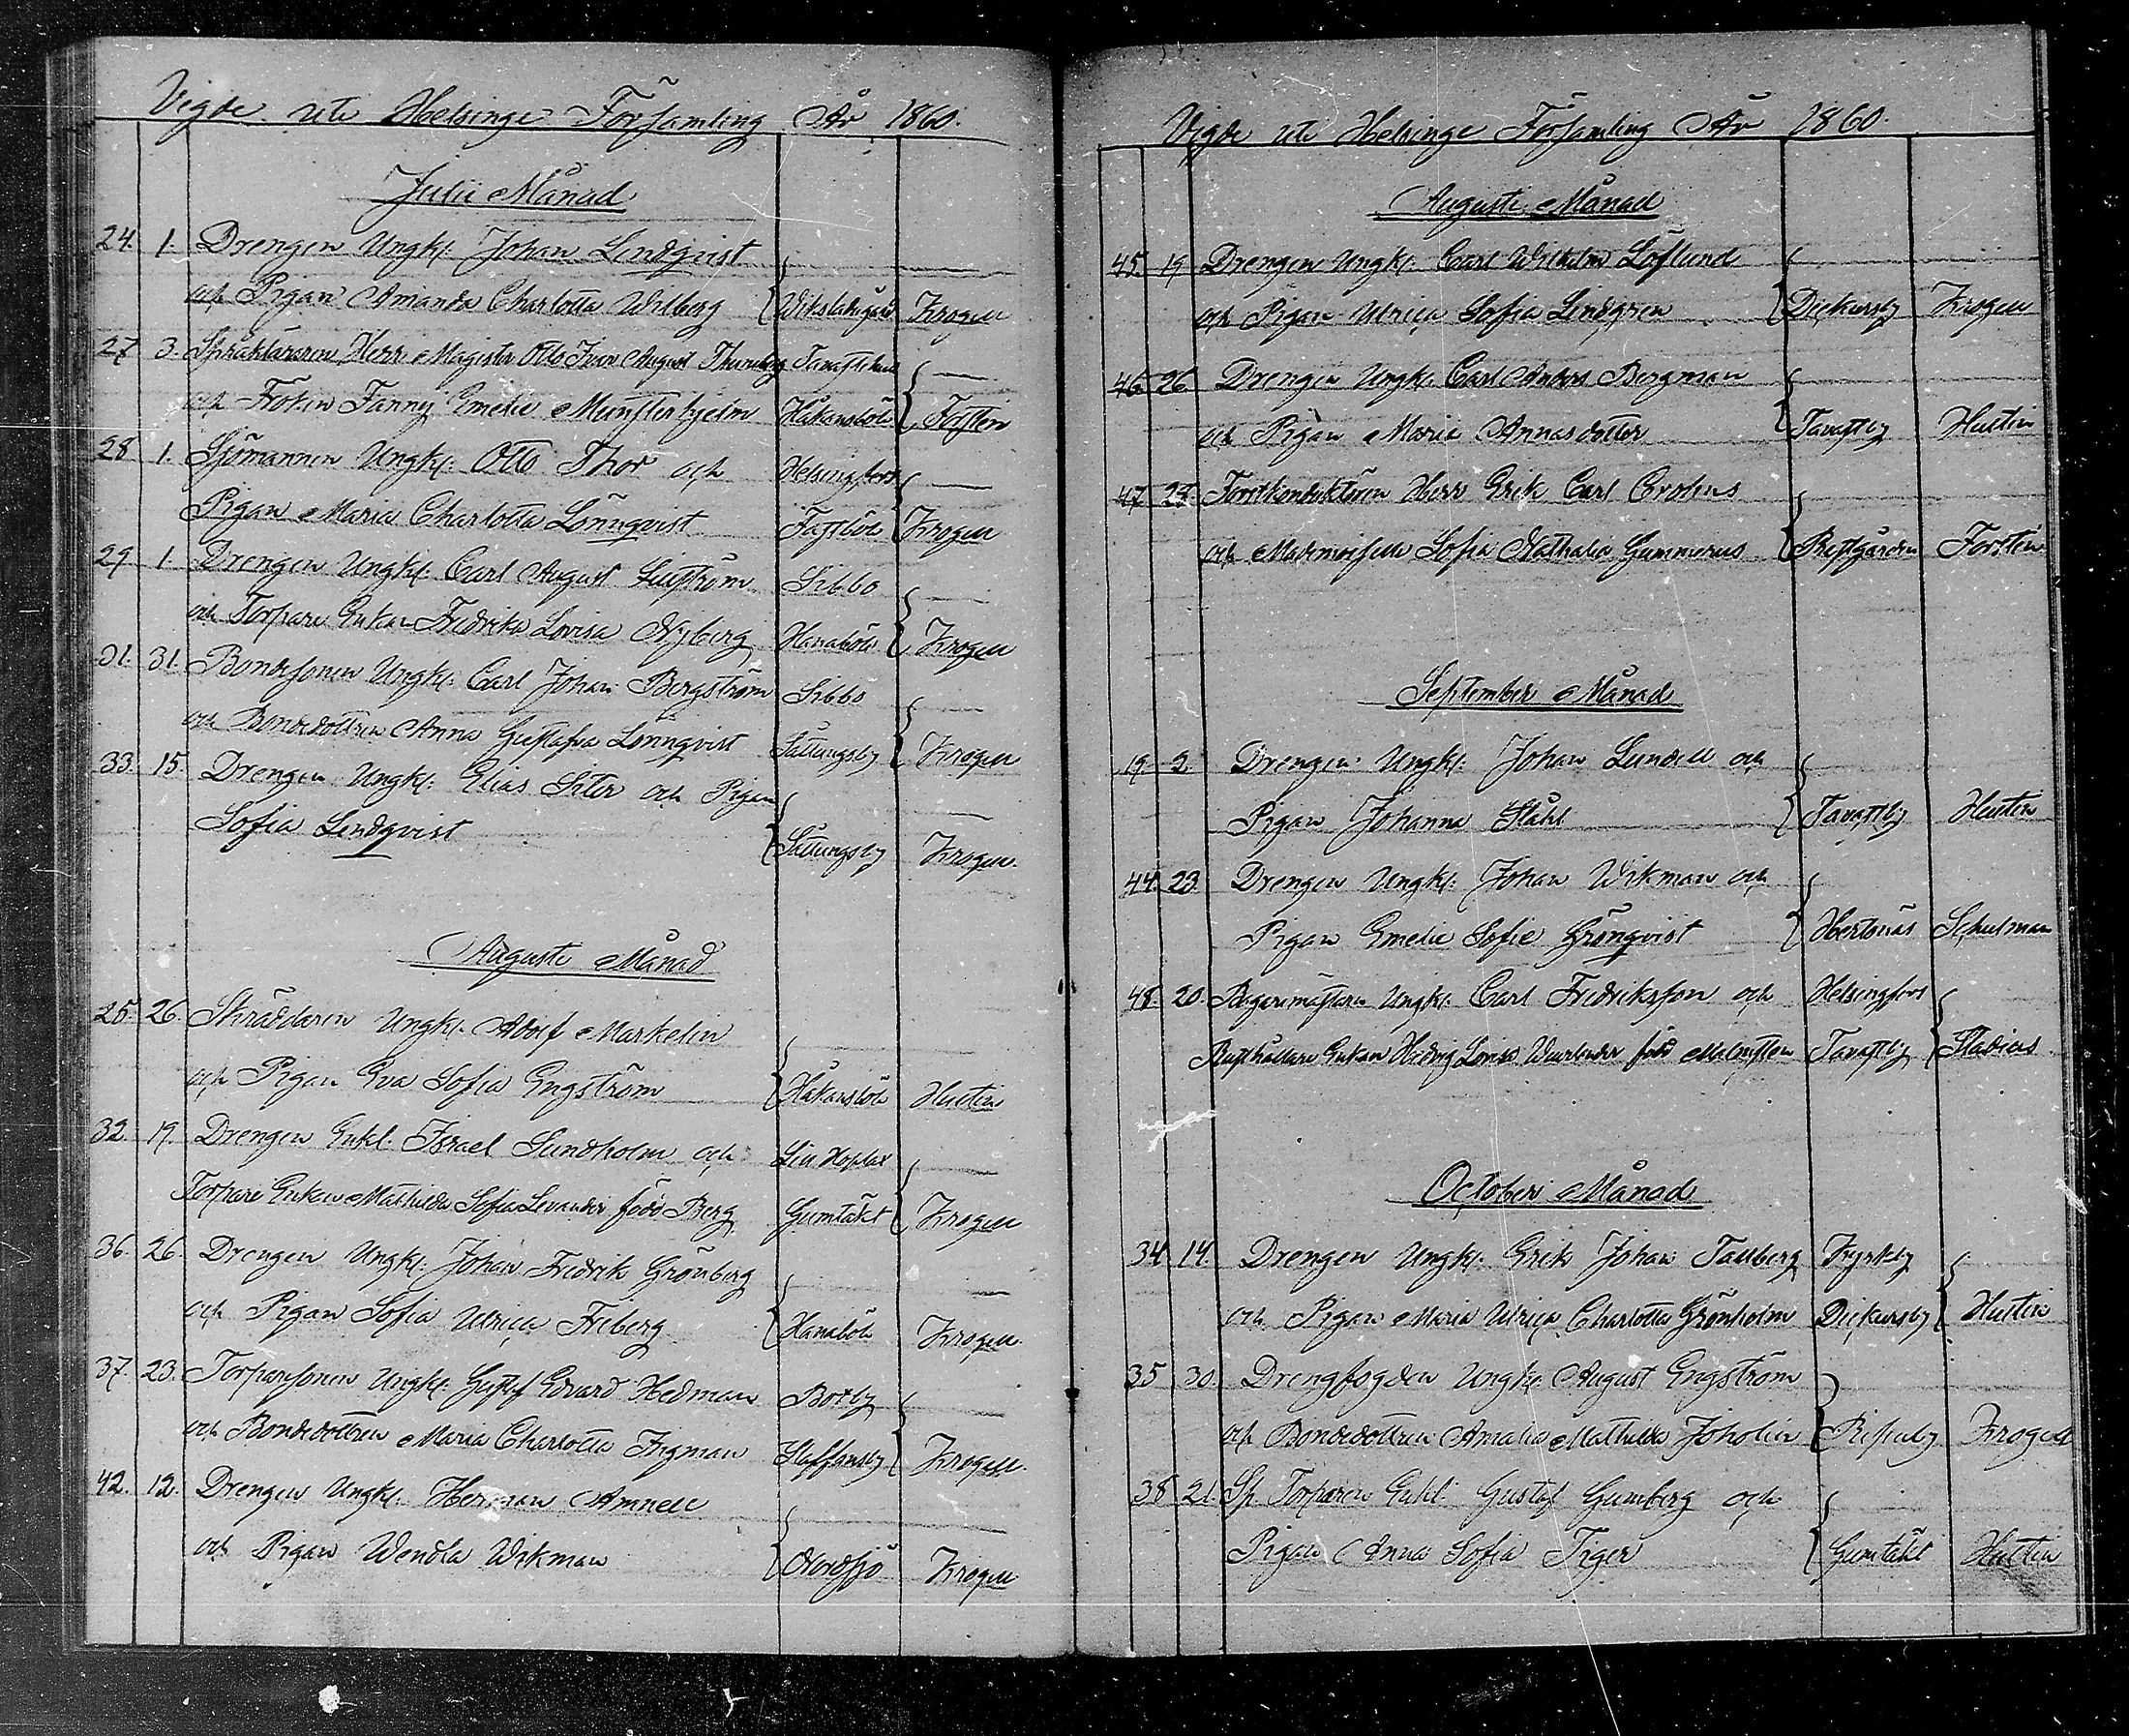 Vigde uti Helsinge Församling År 1860.
Julii Månad
24. 1. Drengen Ungk. Johan Lindqvist
och Pigan Amanda Charlotta Wilberg Krogell
27 3. Språkläraren Herr Magister Otto Ivar August Thuneberg Tavastehus
och Fröken Fanny Emelie Munsterhjelm Håkansböle Forstén
28 1. Sjömannen Ungk. Otto Thor och Helsingfors
Pigan Maria Charlotta Lönnqvist Fastböle Krogell
29 1. Drengen Ungk. Carl August Sibbo
och Torpare Enkan Fredrika Lovisa Nyberg Hanaböle Krogell
31. 31. Bondesonen Ungk. Carl Johan Bergström Sibbo
och Bondedottren Anna Gustafva Lönnqvist Sattungsby Krogell
33. 15 Drengen Ungk. Elias Siter och Pigan
Sofia Lindqvist Sattungsby Krogell.
Augusti Månad
25. 26. Skräddaren Ungk. Adolf Markelin
och Pigan Eva Sofia Engström Håkansböle Hustin
32. 19. Drengen Enkl. Israel Sundholm och Lill Hoplax
Torpare Enkan Mathilda Sofia Levander född Berg Gumtäkt Krogell
36. 26. Drengen Ungk. Johan Fredrik Grönberg
och Pigan Sofia Ulrica Friberg Hanaböle Krogell
37. 23. Torparesonen Ungk. Gustaf Edvard Hedman Botby
och Bondedottren Maria Charlotta Frigman Staffansby Krogell.
42. 12. Drengen Ungk. Herman Amnell
och Pigan Wendla Wikman Nordsjö Krogell
Vigde uti Helsinge Församling År 1860.
Augusti Månad
45. 19 Drengen Ungk. Carl Wilhelm Löflund
och Pigan Ulrica Sofia Lindgren Dickursby Krogell
46. 26 Drengen Ungk. Carl Anders Bergman
och Pigan Maria Annasdotter Tavastby Hustin
47 28. Forstkonduktören Herr Erik Carl Crolius
och Mademoiselle Sofia Nathalia Gummerus Prestgården Forstén
September Månad
19. 2. Drengen Ungk. Johan Lundell och
Pigan Johanna Ståhl Tavastby Hustin
44. 23. Drengen Ungk. Johan Wikman och
Pigan Emelie Sofie Grönqvist Hertonäs Schulman
48. 20. Bagaremästaren Ungk. Carl Fredriksson och Helsingfors
Rusthållare Enkan Hedvig Lovisa född Malmsten Tavastby Stadius
October Månad
34 14. Drengen Ungk. Erik Johan Tallberg Kyrkby
och Pigan Maria Ulrica Charlotta Grönholm Dickursby Hustin
35 30. Drengfogden Ungk. August Engström
och Bondedottren Amalia Mathilda Joholin Krogell
38 21. Sp. Torparen Enkl. Gustaf Gumberg och
Pigan Anna Sofia Tiger Gumtäkt Hustin